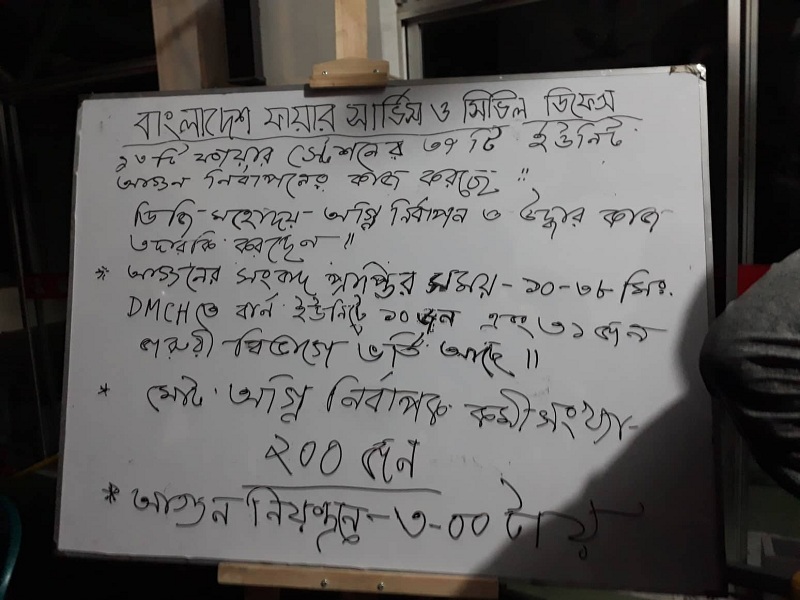 বাংলাদেশ ফায়ার সার্ভিস ও সিভিল ডিফেন্স
১৩টি ফায়ার স্টেশনের ৩৭ টি ইউনিট
আগুন নির্বাপনের কাজ করছে ॥
ডিজি-মহোদয়- অগ্নি নির্বাপন ও উদ্ধার কাজ
তদারকি করছেন ॥
* আগুনের সংবাদ প্রাপ্তির সময়-১০-৩৮ মিঃ
DMCH তে বার্ন ইউনিটে ১০ জন এবং ৩১ জন
জরুরী বিভাগে ভর্তি আছে ॥
* মোট অগ্নি নির্বাপক কর্মী সংখ্যা-
২০০ জন
* আগুন নিয়ন্ত্রনে-৩-০০ টায়